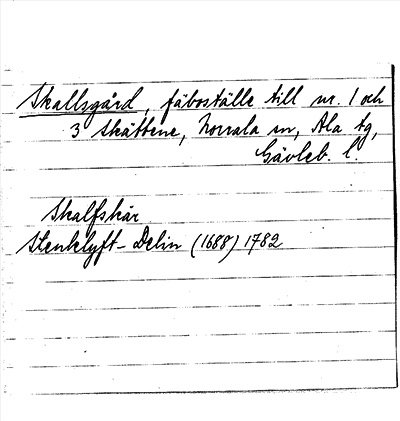 Skallsgård, fäboställe till nr. 1 och
3 Skättene, Norrala sn, Ala tg,
Gävleb. l.
Skalfskär
Stenklyft-Delin (1688) 1782